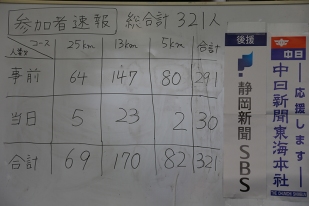 参加者速報 総合計321人
コース 人数 25km 13km 5km 合計
事前 64 147 80 291
当日 5 23 2 30
合計 69 170 82 321
後援
静岡新聞SBS
中日
―応援します―
中日新聞東海本社